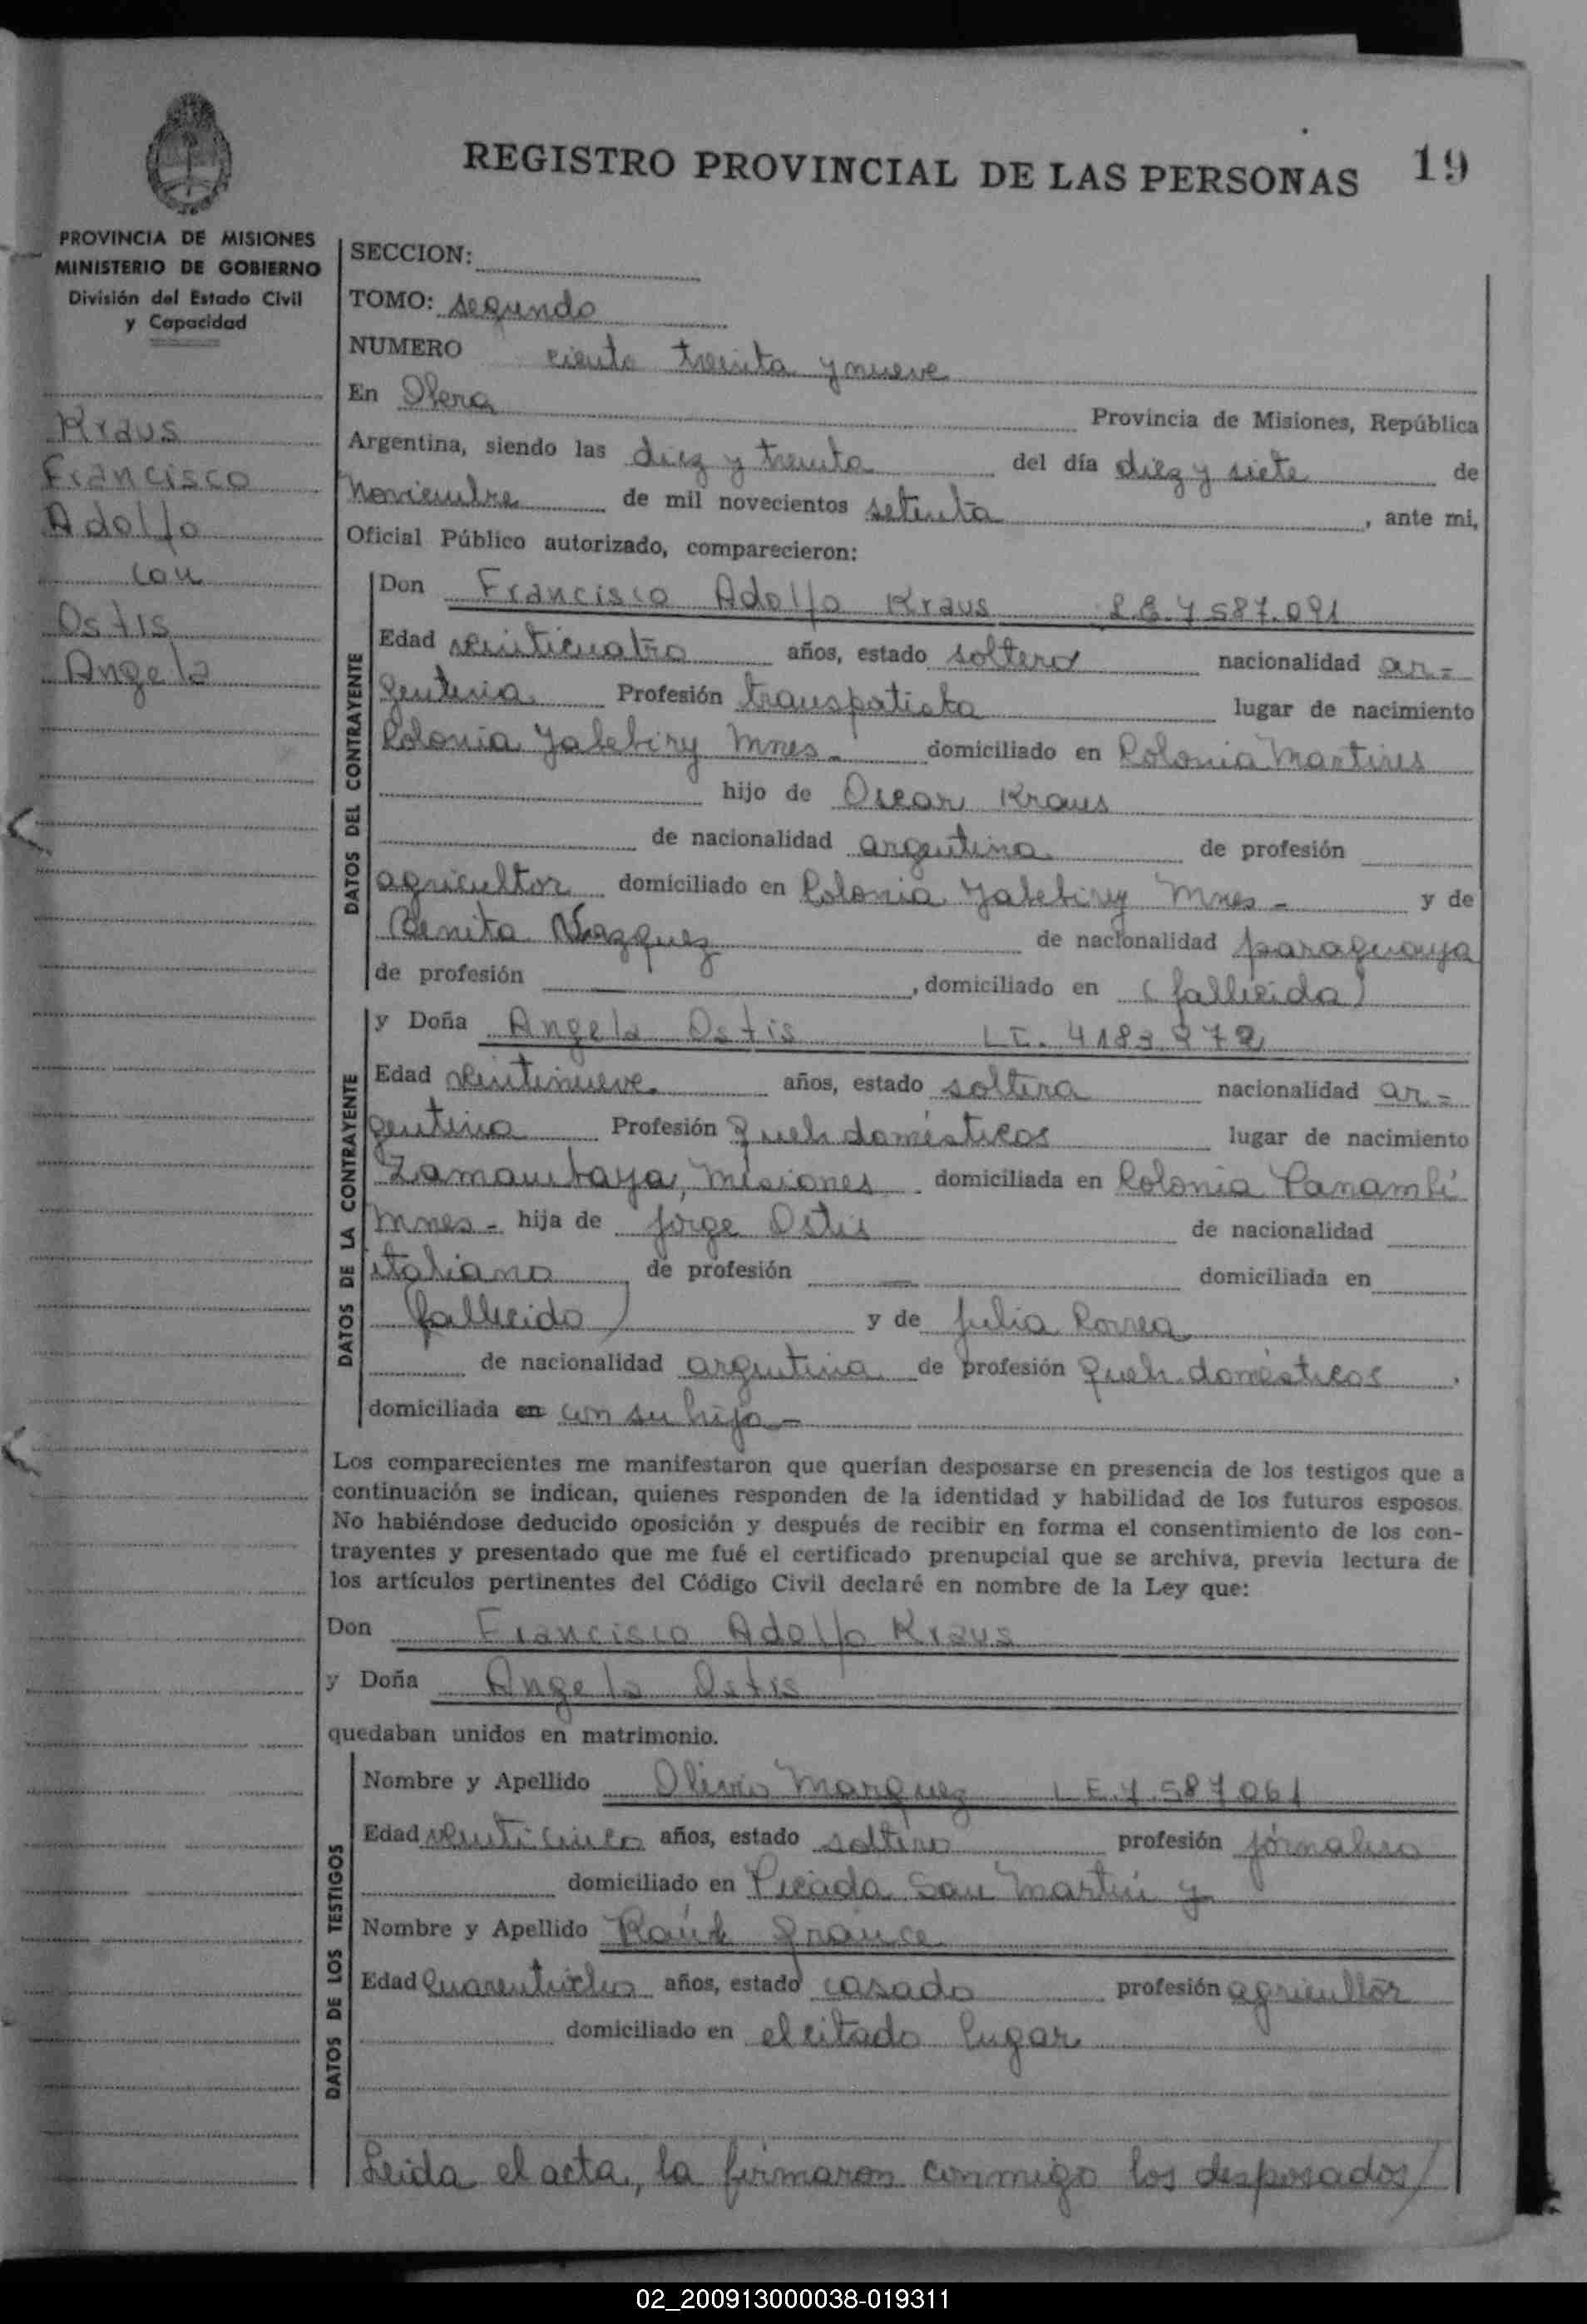 REGISTRO PROVINCIAL DE LAS PERSONAS 19
PROVINCIA DE MISIONES
MINISTERIO DE GOBIERNO
División del Estado Civil
y Capacidad
Kraus
Francisco
Adolfo
con
Ostis
Angela
SECCION:
TOMO: segundo
NUMERO ciento treinta y nueve
En Obera Provincia de Misiones, República
Argentina, siendo las diez y treinta del día diez y siete de
Noviembre de mil novecientos setenta, ante mi,
Oficial Público autorizado, comparecieron:
DATOS DEL CONTRAYENTE
Don Francisco Adolfo Kraus L.E. 7587.091
Edad veinticuatro años, estado soltero nacionalidad ar-
gentina Profesión lugar de nacimiento
Colonia Yabebiry Mnes- domiciliado en Colonia Martires
hijo de Oscar Kraus
de nacionalidad argentina de profesión
agricultor domiciliado en Colonia Yabebiry Mnes - y de
Benita Vazquez de nacionalidad paraguaya
de profesión , domiciliado en (fallecida)
DATOS DE LA CONTRAYENTE
y Doña Angela Ostis
Edad veintinueve años, estado soltera nacionalidad ar-
gentina Profesión queh domésticos lugar de nacimiento
Misiones domiciliada en Colonia Panambi
Mnes- hija de Jorge Ostis de nacionalidad
italiano de profesión — domiciliada en
fallecido) y de Julia Correa
de nacionalidad argentina de profesión queh. domésticos,
domiciliada en con su hija-
Los comparecientes me manifestaron que querían desposarse en presencia de los testigos que a
continuación se indican, quienes responden de la identidad y habilidad de los futuros esposos.
No habiéndose deducido oposición y después de recibir en forma el consentimiento de los con-
trayentes y presentado que me fué el certificado prenupcial que se archiva, previa lectura de
los artículos pertinentes del Código Civil declaré en nombre de la Ley que:
Don Francisco Adolfo Kraus
y Doña Angela Ostis
quedaban unidos en matrimonio.
DATOS DE LOS TESTIGOS
Nombre y Apellido Olivio Marquez L E. 7.587 061
Edad veinticinco años, estado soltero profesión jornalero
domiciliado en Picada San Martin y
Nombre y Apellido Raúl
Edad años, estado casado profesión agricultor
domiciliado en el citado lugar
Leida el acta, la firmaron conmigo los desposados/
02_200913000038-019311